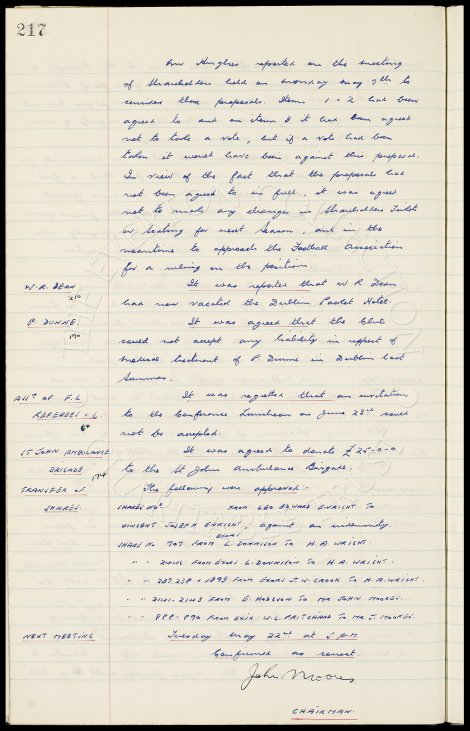 217
Mr Hughes reported on the meeting
of Shareholders held on Monday May 7th to
consider these proposals. Items 1 & 2 had been
agreed to and on item 3 it had been agreed
not to take a vote, but if a vote had been
taken it would have been against this proposal.
In view of the fact that the proposals had
not been agreed to in full, it was agreed
not to make any changes in Shareholders Tickets
or Seating for next Season, and in the
meantime to approach the Football Association
for a ruling on the position.
W. R. DEAN It was reported that W R Dean
210 had now vacated the Dublin Packet Hotel.
P. DUNNE It was agreed that the Club
190 could not accept any liability in respect of
medical treatment of P Dunne in Dublin last
Summer.
ASSn OF F.L It was regretted that an invitation
REFEREES & L. to the Conference Luncheon on June 23rd could
64 not be accepted.
ST JOHN AMBULANCE It was agreed to donate £25-0-0
BRIGADE to the St John Ambulance Brigade.
TRANSFER OF The following were approved:-
SHARES. SHARES Nos. FROM LEO EDWARD ENRIGHT TO
VINCENT JOSEPH ENRIGHT, against an indemnity
SHARE No 707 FROM EXORS L. DONNISON TO H. A WRIGHT
" " FROM EXORS L. DONNISON TO H. A. WRIGHT.
" " 237.238 & 1893 FROM EXORS J. W. CROOK TO H. A. WRIGHT.
" " 2141-2143 FROM E. HODGSON TO MR JOHN MOORES.
" " 889-890 FROM EXIX W. L. PRITCHARD TO MR J. MOORES.
NEXT MEETING Tuesday May 22nd at 5 P.M.
Confirmed as correct.
John Moores
CHAIRMAN.